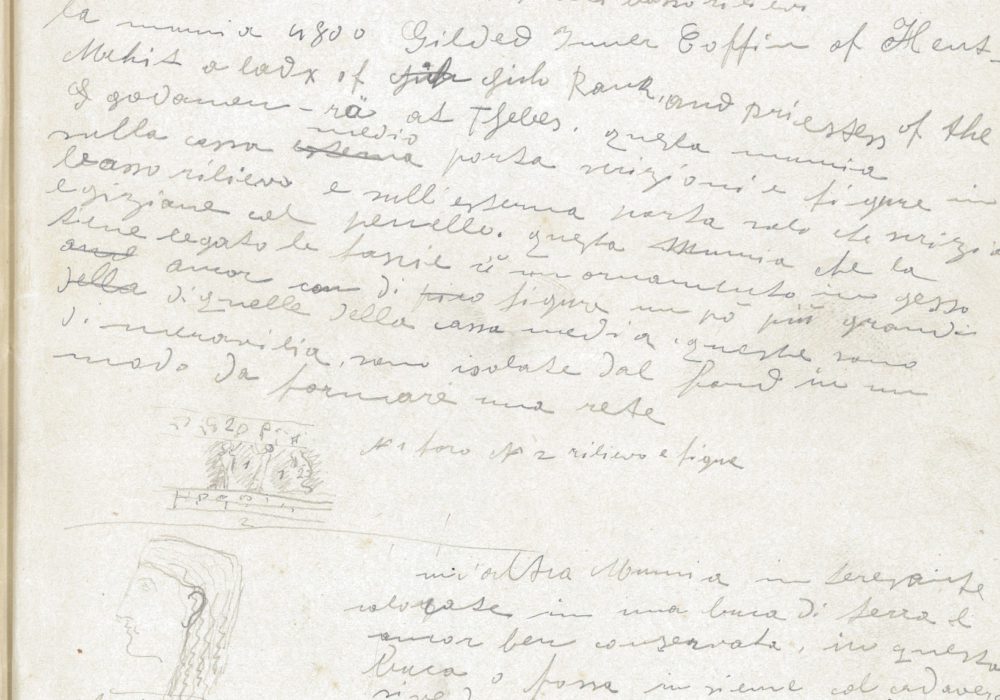 la mumia 4800 Gilded Inner Coffin of Hent-
Mehit a ladx of gich Rank, and priestess of the
godamon-rä at Thebes. questa mumia
medio
sulla cassa esterna porta scrizioni e figure in
basso rilievo e sull'esterna porta solo che scrizio
egiziane col penello. questa Mumia che la
tiene legato le fascie è un ornamento in gesso
and ancor con di figure un pò più grandi
della di quelle della cassa media. queste sono
di meravilia, sono isolate dal fond in un
modo da formare una rete
N 1 foro N 2 rilievo e figue
un'altra Mumia interesante
in una buca di terra e
ancor ben conservata, in questa
buca o fossa insieme col cadave